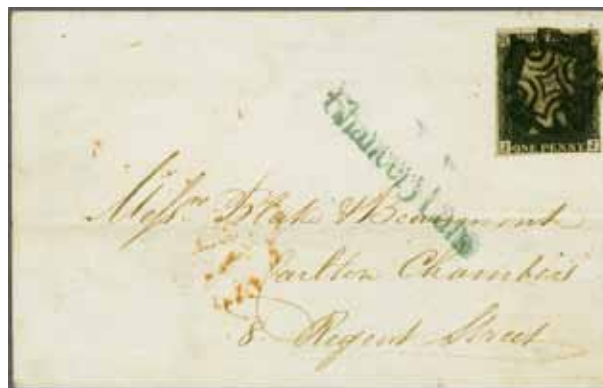 ONE PENNY
Chancery Lane
Messrs Blake & Beaumont
Carlton Chambers
8 Regent Street